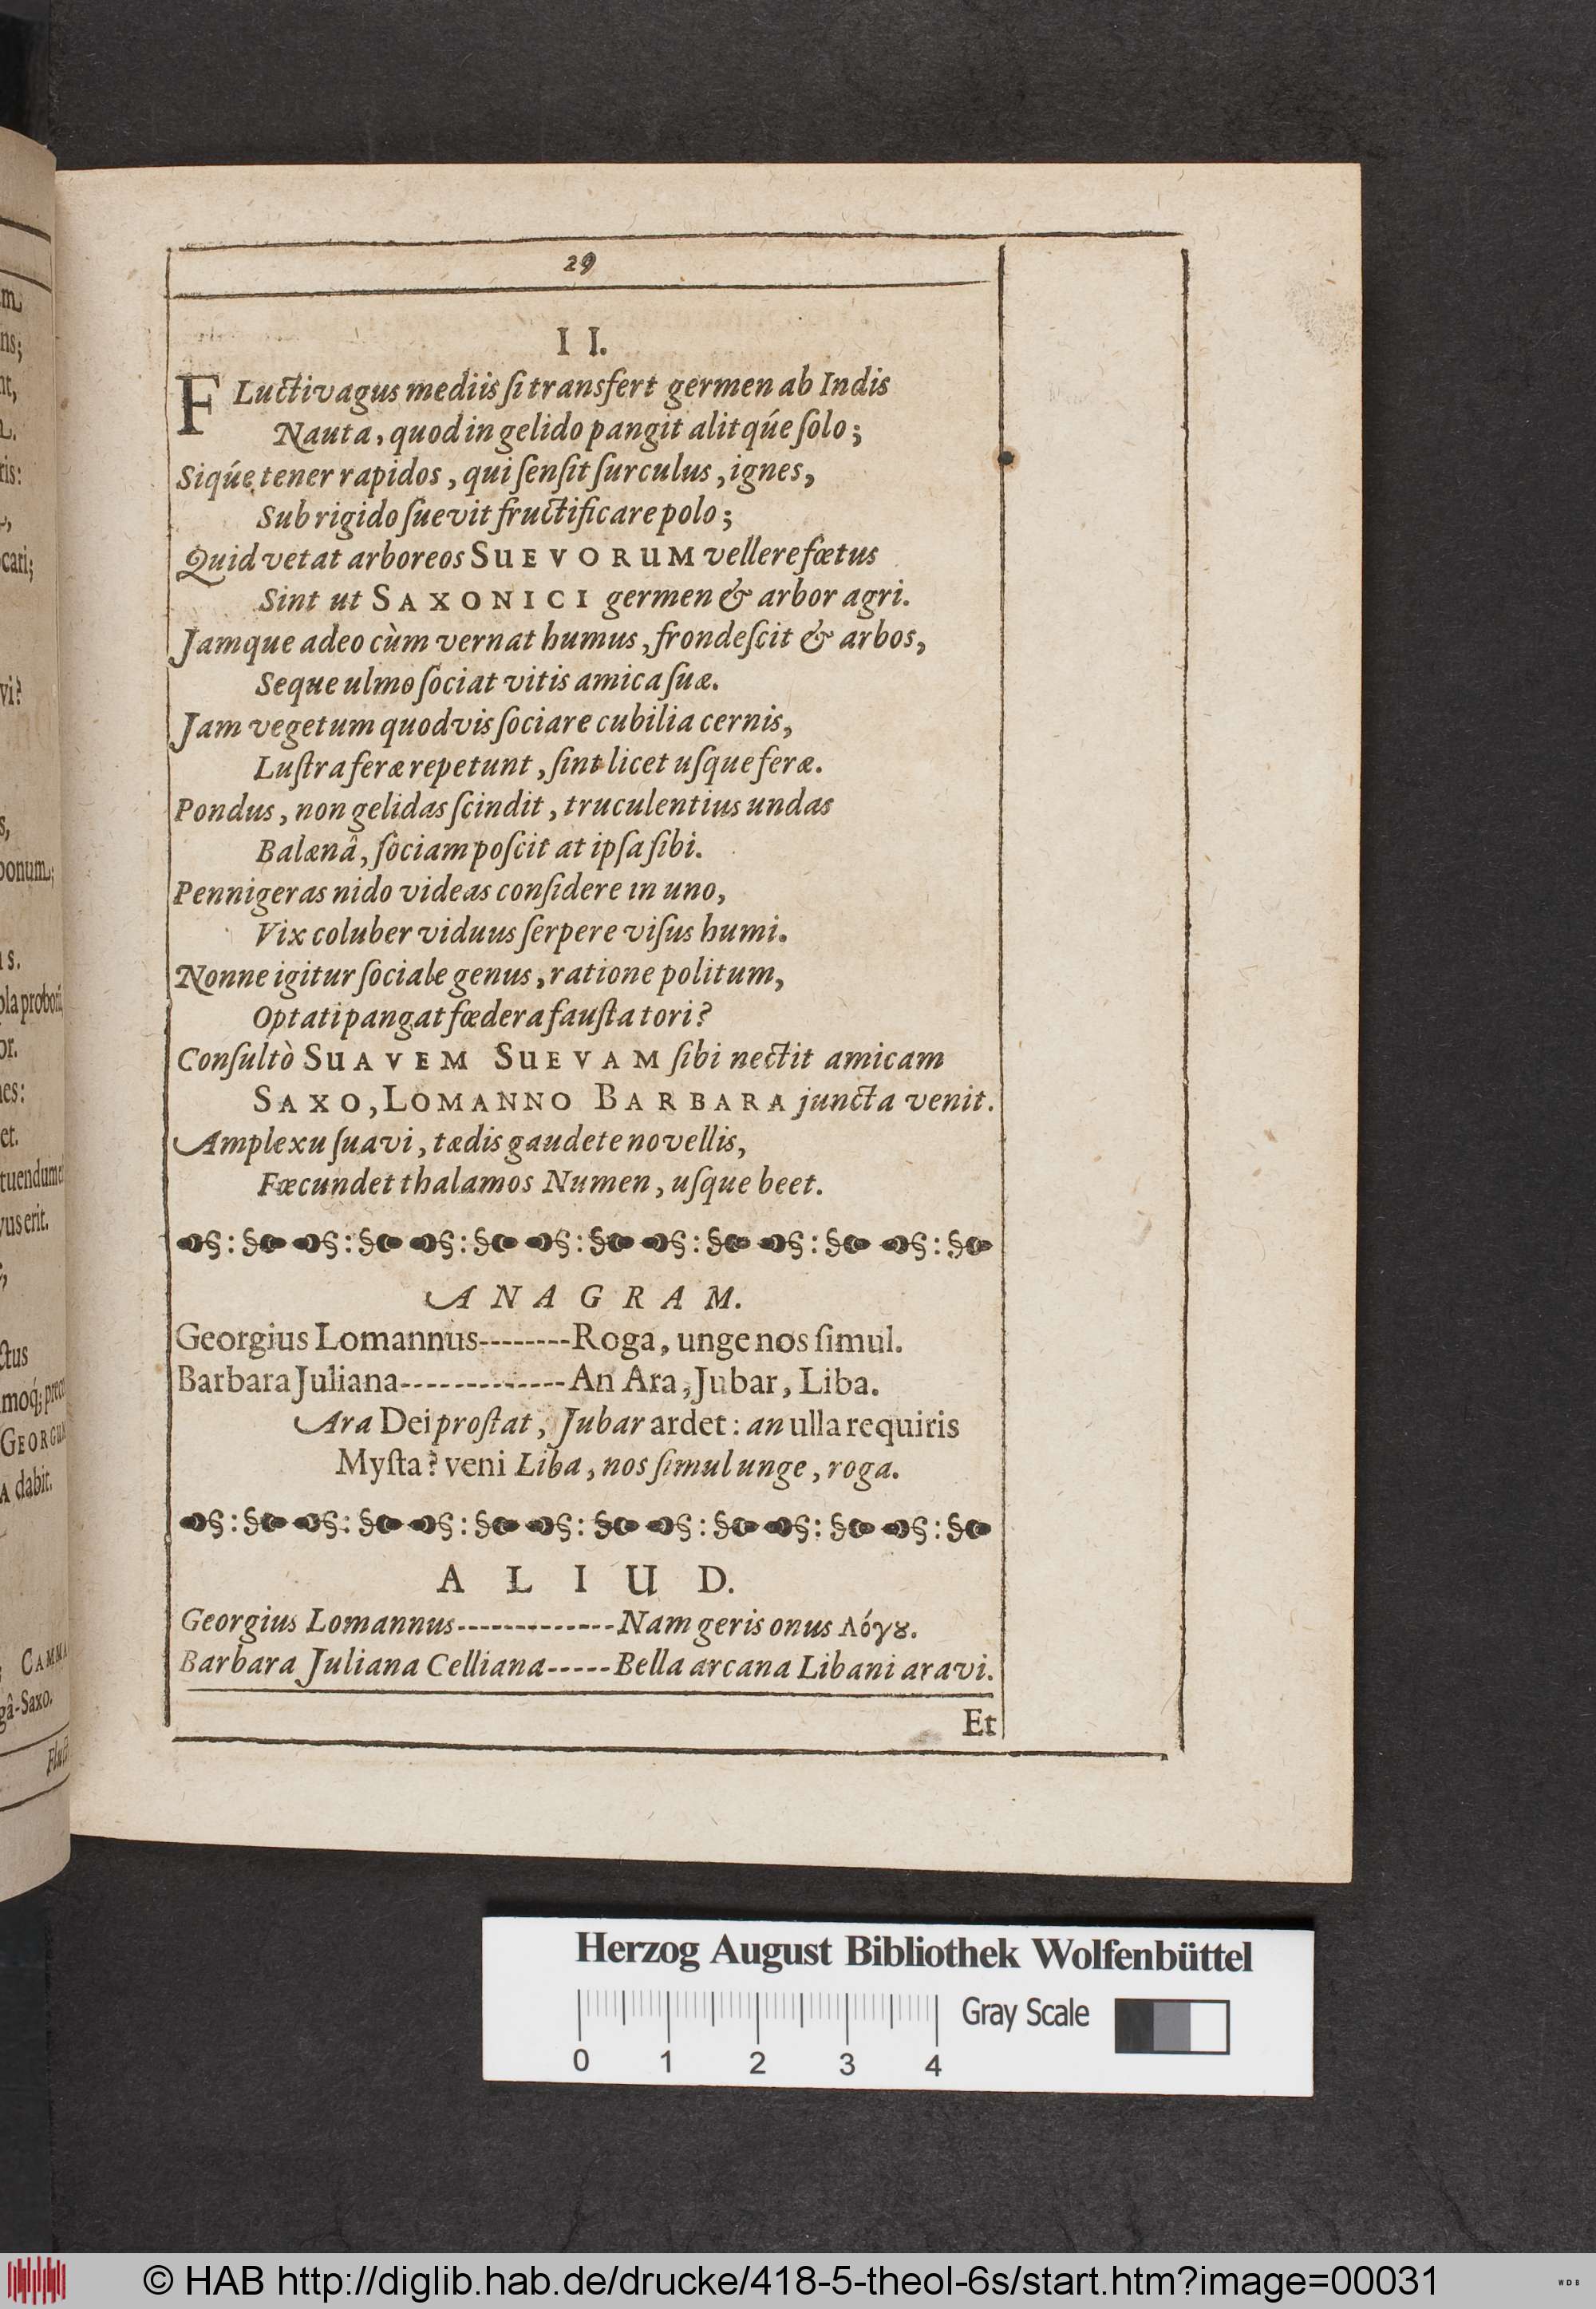 m
ns;
nt,
ris:
cari;
vi?
s,
bonum;
is.
pla probor
or.
nes:
et.
tuendum
vus erit.
ctus
moq́; preco
GEORGI
A dabit.
CAMMA
gâ-Saxo.
Fluct
29
II.
FLuctivagus mediis ſi transfert germen ab Indis
Nauta, quod in gelido pangit alitqúe ſolo;
Siqúe tener rapidos, qui ſenſit ſurculus, ignes,
Sub rigido ſuevit fructificare polo;
Quid vetat arboreos SUEVORUM vellere fœtus
Sint ut SAXONICI germen & arbor agri.
Jamque adeo cùm vernat humus, frondeſcit & arbos,
Seque ulmo ſociat vitis amica ſuæ.
Jam vegetum quodvis ſociare cubilia cernis,
Luſtra feræ repetunt, ſint licet uſque feræ.
Pondus, non gelidas ſcindit, truculentius undas
Balænâ, ſociam poſcit at ipſa ſibi.
Pennigeras nido videas conſidere in uno,
Vix coluber viduus ſerpere viſus humi.
Nonne igitur ſociale genus, ratione politum,
Optati pangat fœdera fauſta tori?
Conſultò SUAVEM SUEVAM ſibi nectit amicam
SAXO, LOMANNO BARBARA juncta venit.
Amplexu ſuavi, tædis gaudete novellis,
Fœcundet thalamos Numen, uſque beet.
ANAGRAM.
Georgius Lomannus--------Roga, unge nos ſimul.
Barbara Juliana-------------An Ara, Jubar, Liba.
Ara Dei proſtat, Jubar ardet: an ulla requiris
Myſta? veni Liba, nos ſimul unge, roga.
ALIUD.
Georgius Lomannus-------------Nam geris onus Λόγȣ.
Barbara Juliana Celliana-----Bella arcana Libani aravi.
Et
Herzog August Bibliothek Wolfenbüttel
0 1 2 3 4 Gray Scale
© HAB http://diglib.hab.de/drucke/418-5-theol-6s/start.htm?image=00031
WDB